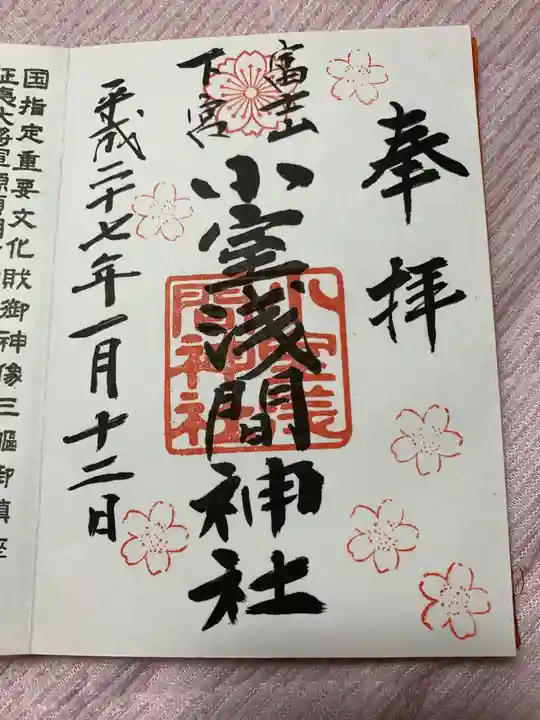 奉拝
富士山
下宮
小室浅間神社
小室浅間神社
平成二十七年一月十二日
国指定重要文化財御神像三軀御鎮座
征夷大将軍源頼朝